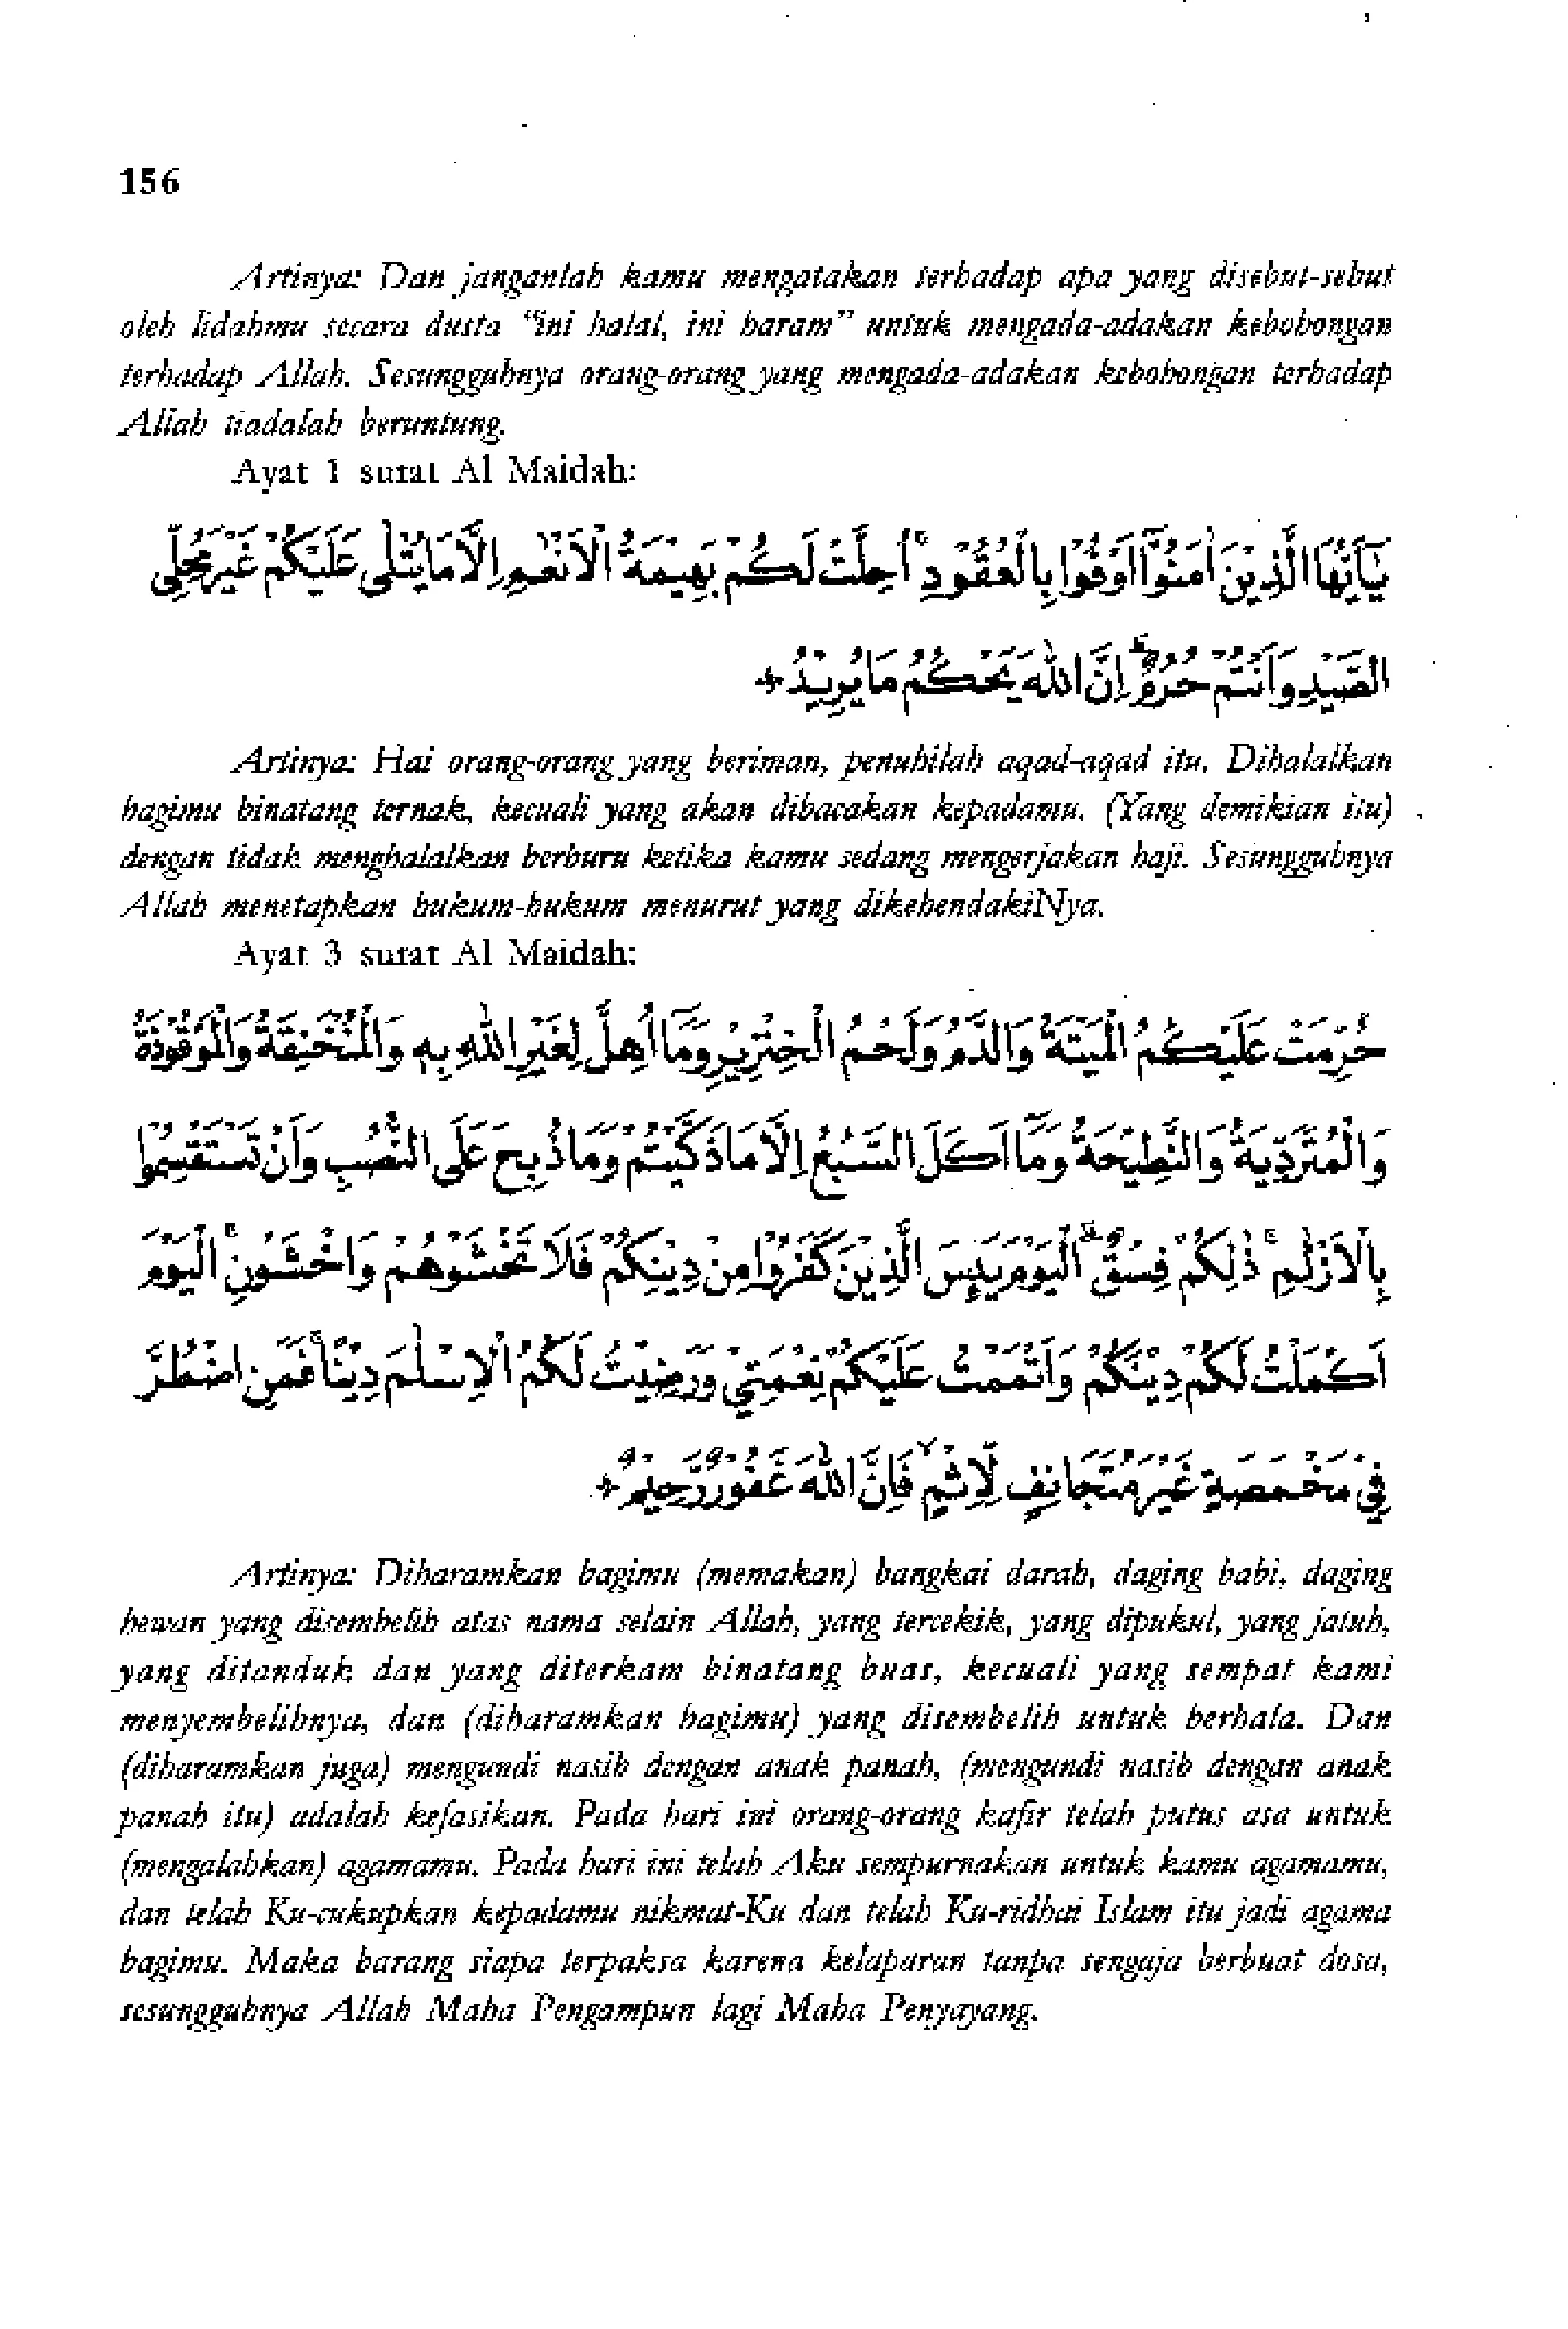 156
Artinya: Dan janganlah kamu mengatakan terhadap apa yang disebut-sebut
oleh lidahmu secara dusta “ini halal, ini haram” untuk mengada-adakan kebohongan
terhadap Allah. Sesungguhnya orang-orang yang mengada-adakan kebohongan terhadap
Allah tiadalah beruntung.
Ayat 1 surat Al Maidah:
يٰٓاَيُّهَا الَّذِيْنَ اٰمَنُوْٓا اَوْفُوْا بِالْعُقُوْدِۗ اُحِلَّتْ لَكُمْ بَهِيْمَةُ الْاَنْعٰمِ اِلَّا مَا يُتْلٰى عَلَيْكُمْ غَيْرَ مُحِلِّى
الصَّيْدِ وَاَنْتُمْ حُرُمٌۗ اِنَّ اللّٰهَ يَحْكُمُ مَا يُرِيْدُ +
Artinya: Hai orang-orang yang beriman, penuhilah aqad-aqad itu. Dihalalkan
bagimu binatang ternak, kecuali yang akan dibacakan kepadamu. (Yang demikian itu)
dengan tidak menghalalkan berburu ketika kamu sedang mengerjakan haji. Sesungguhnya
Allah menetapkan hukum-hukum menurut yang dikehendakiNya.
Ayat 3 surat Al Maidah:
حُرِّمَتْ عَلَيْكُمُ الْمَيْتَةُ وَالدَّمُ وَلَحْمُ الْخِنْزِيْرِ وَمَآ اُهِلَّ لِغَيْرِ اللّٰهِ بِهٖ وَالْمُنْخَنِقَةُ وَالْمَوْقُوْذَةُ
وَالْمُتَرَدِّيَةُ وَالنَّطِيْحَةُ وَمَآ اَكَلَ السَّبُعُ اِلَّا مَا ذَكَّيْتُمْ وَمَا ذُبِحَ عَلَى النُّصُبِ وَاَنْ تَسْتَقْسِمُوْا
بِالْاَزْلٰمِۗ ذٰلِكُمْ فِسْقٌۗ اَلْيَوْمَ يَىِٕسَ الَّذِيْنَ كَفَرُوْا مِنْ دِيْنِكُمْ فَلَا تَخْشَوْهُمْ وَاخْشَوْنِۗ اَلْيَوْمَ
اَكْمَلْتُ لَكُمْ دِيْنَكُمْ وَاَتْمَمْتُ عَلَيْكُمْ نِعْمَتِيْ وَرَضِيْتُ لَكُمُ الْاِسْلٰمَ دِيْنًاۗ فَمَنِ اضْطُرَّ
فِيْ مَخْمَصَةٍ غَيْرَ مُتَجَانِفٍ لِّاِثْمٍۙ فَاِنَّ اللّٰهَ غَفُوْرٌ رَّحِيْمٌ +
Artinya: Diharamkan bagimu (memakan) bangkai darah, daging babi, daging
hewan yang disembelih atas nama selain Allah, yang tercekik, yang dipukul, yang jatuh,
yang ditanduk dan yang diterkam binatang buas, kecuali yang sempat kami
menyembelihnya, dan (diharamkan bagimu) yang disembelih untuk berhala. Dan
(diharamkan juga) mengundi nasib dengan anak panah, (mengundi nasib dengan anak
panah itu) adalah kefasikan. Pada hari ini orang-orang kafir telah putus asa untuk
(mengalahkan) agamamu. Pada hari ini telah Aku sempurnakan untuk kamu agamamu,
dan telah Ku-cukupkan kepadamu nikmat-Ku dan telah Ku-ridhai Islam itu jadi agama
bagimu. Maka barang siapa terpaksa karena kelaparan tanpa sengaja berbuat dosa,
sesungguhnya Allah Maha Pengampun lagi Maha Penyayang.